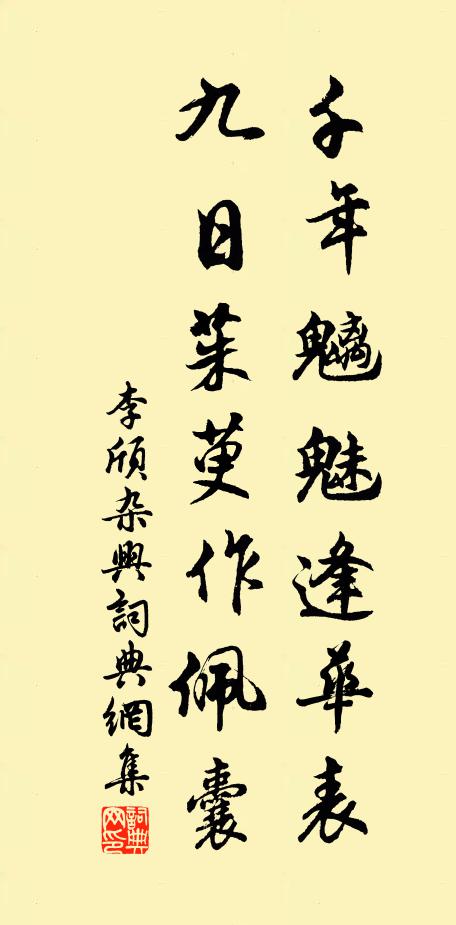 千年魑魅逢華表
九日茱萸作佩囊
李頎杂興詞典網集
詞典網印